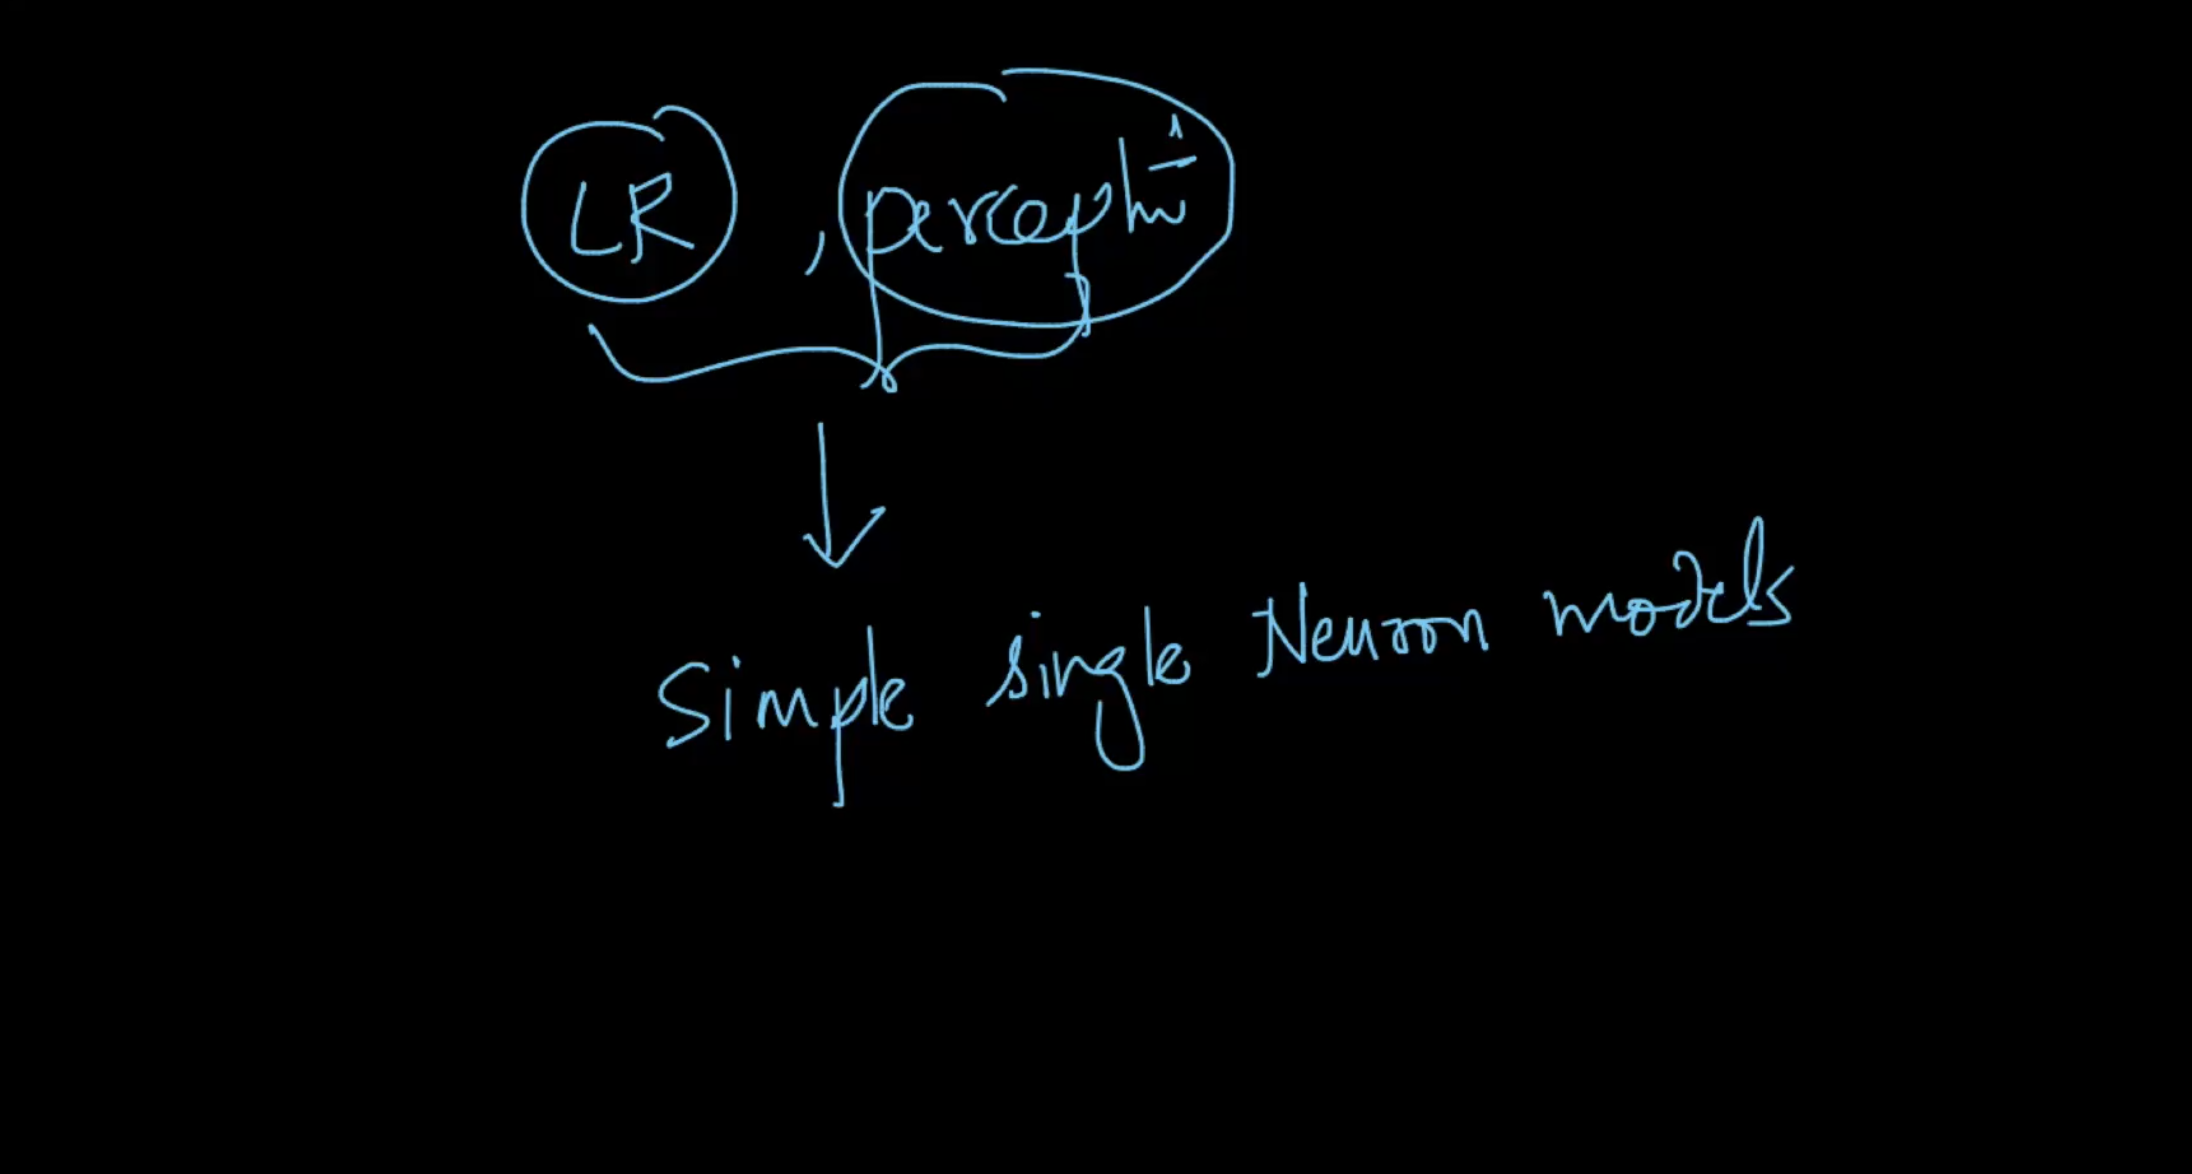 LR , perceptron
Simple single Neuron models